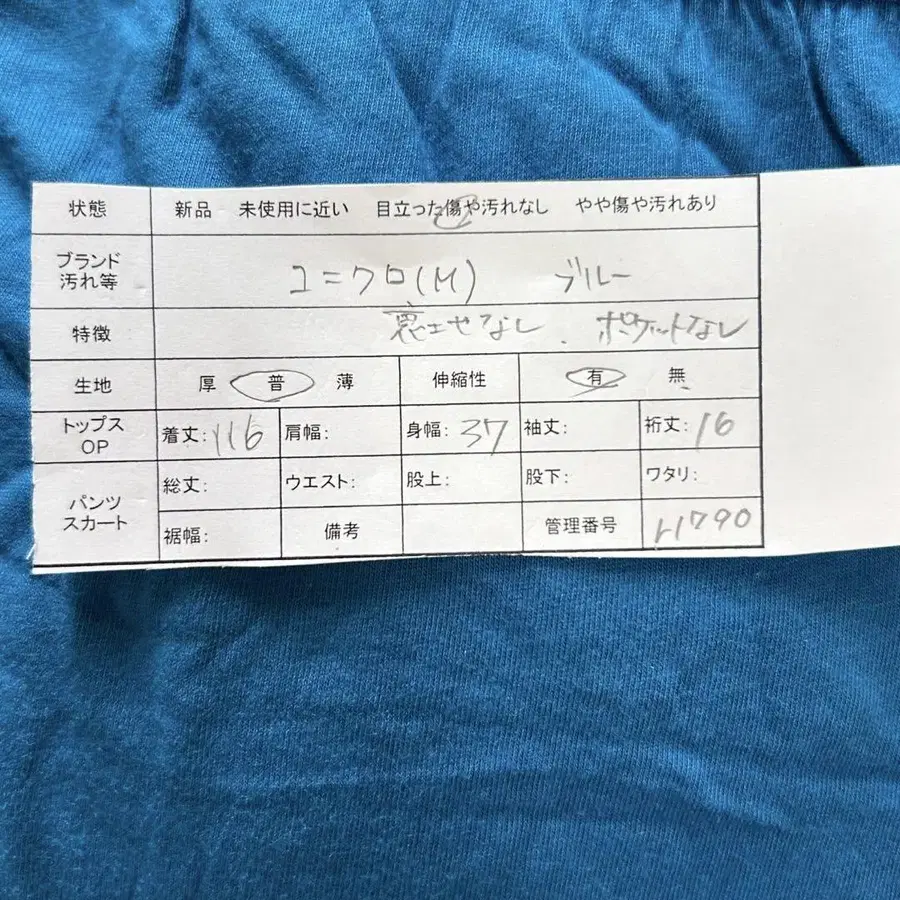 状態 新品 未使用に近い 目立った傷や汚れなし やや傷や汚れあり
ブランド
汚れ等 ユニクロ(M) ブルー
特徴 なし、ポケットなし
生地 厚 普 薄 伸縮性 有 無
トップス
OP 着丈:116 肩幅: 身幅:37 袖丈: 裄丈:16
パンツ
スカート 総丈: ウエスト: 股上: 股下: ワタリ:
裾幅: 備考 管理番号